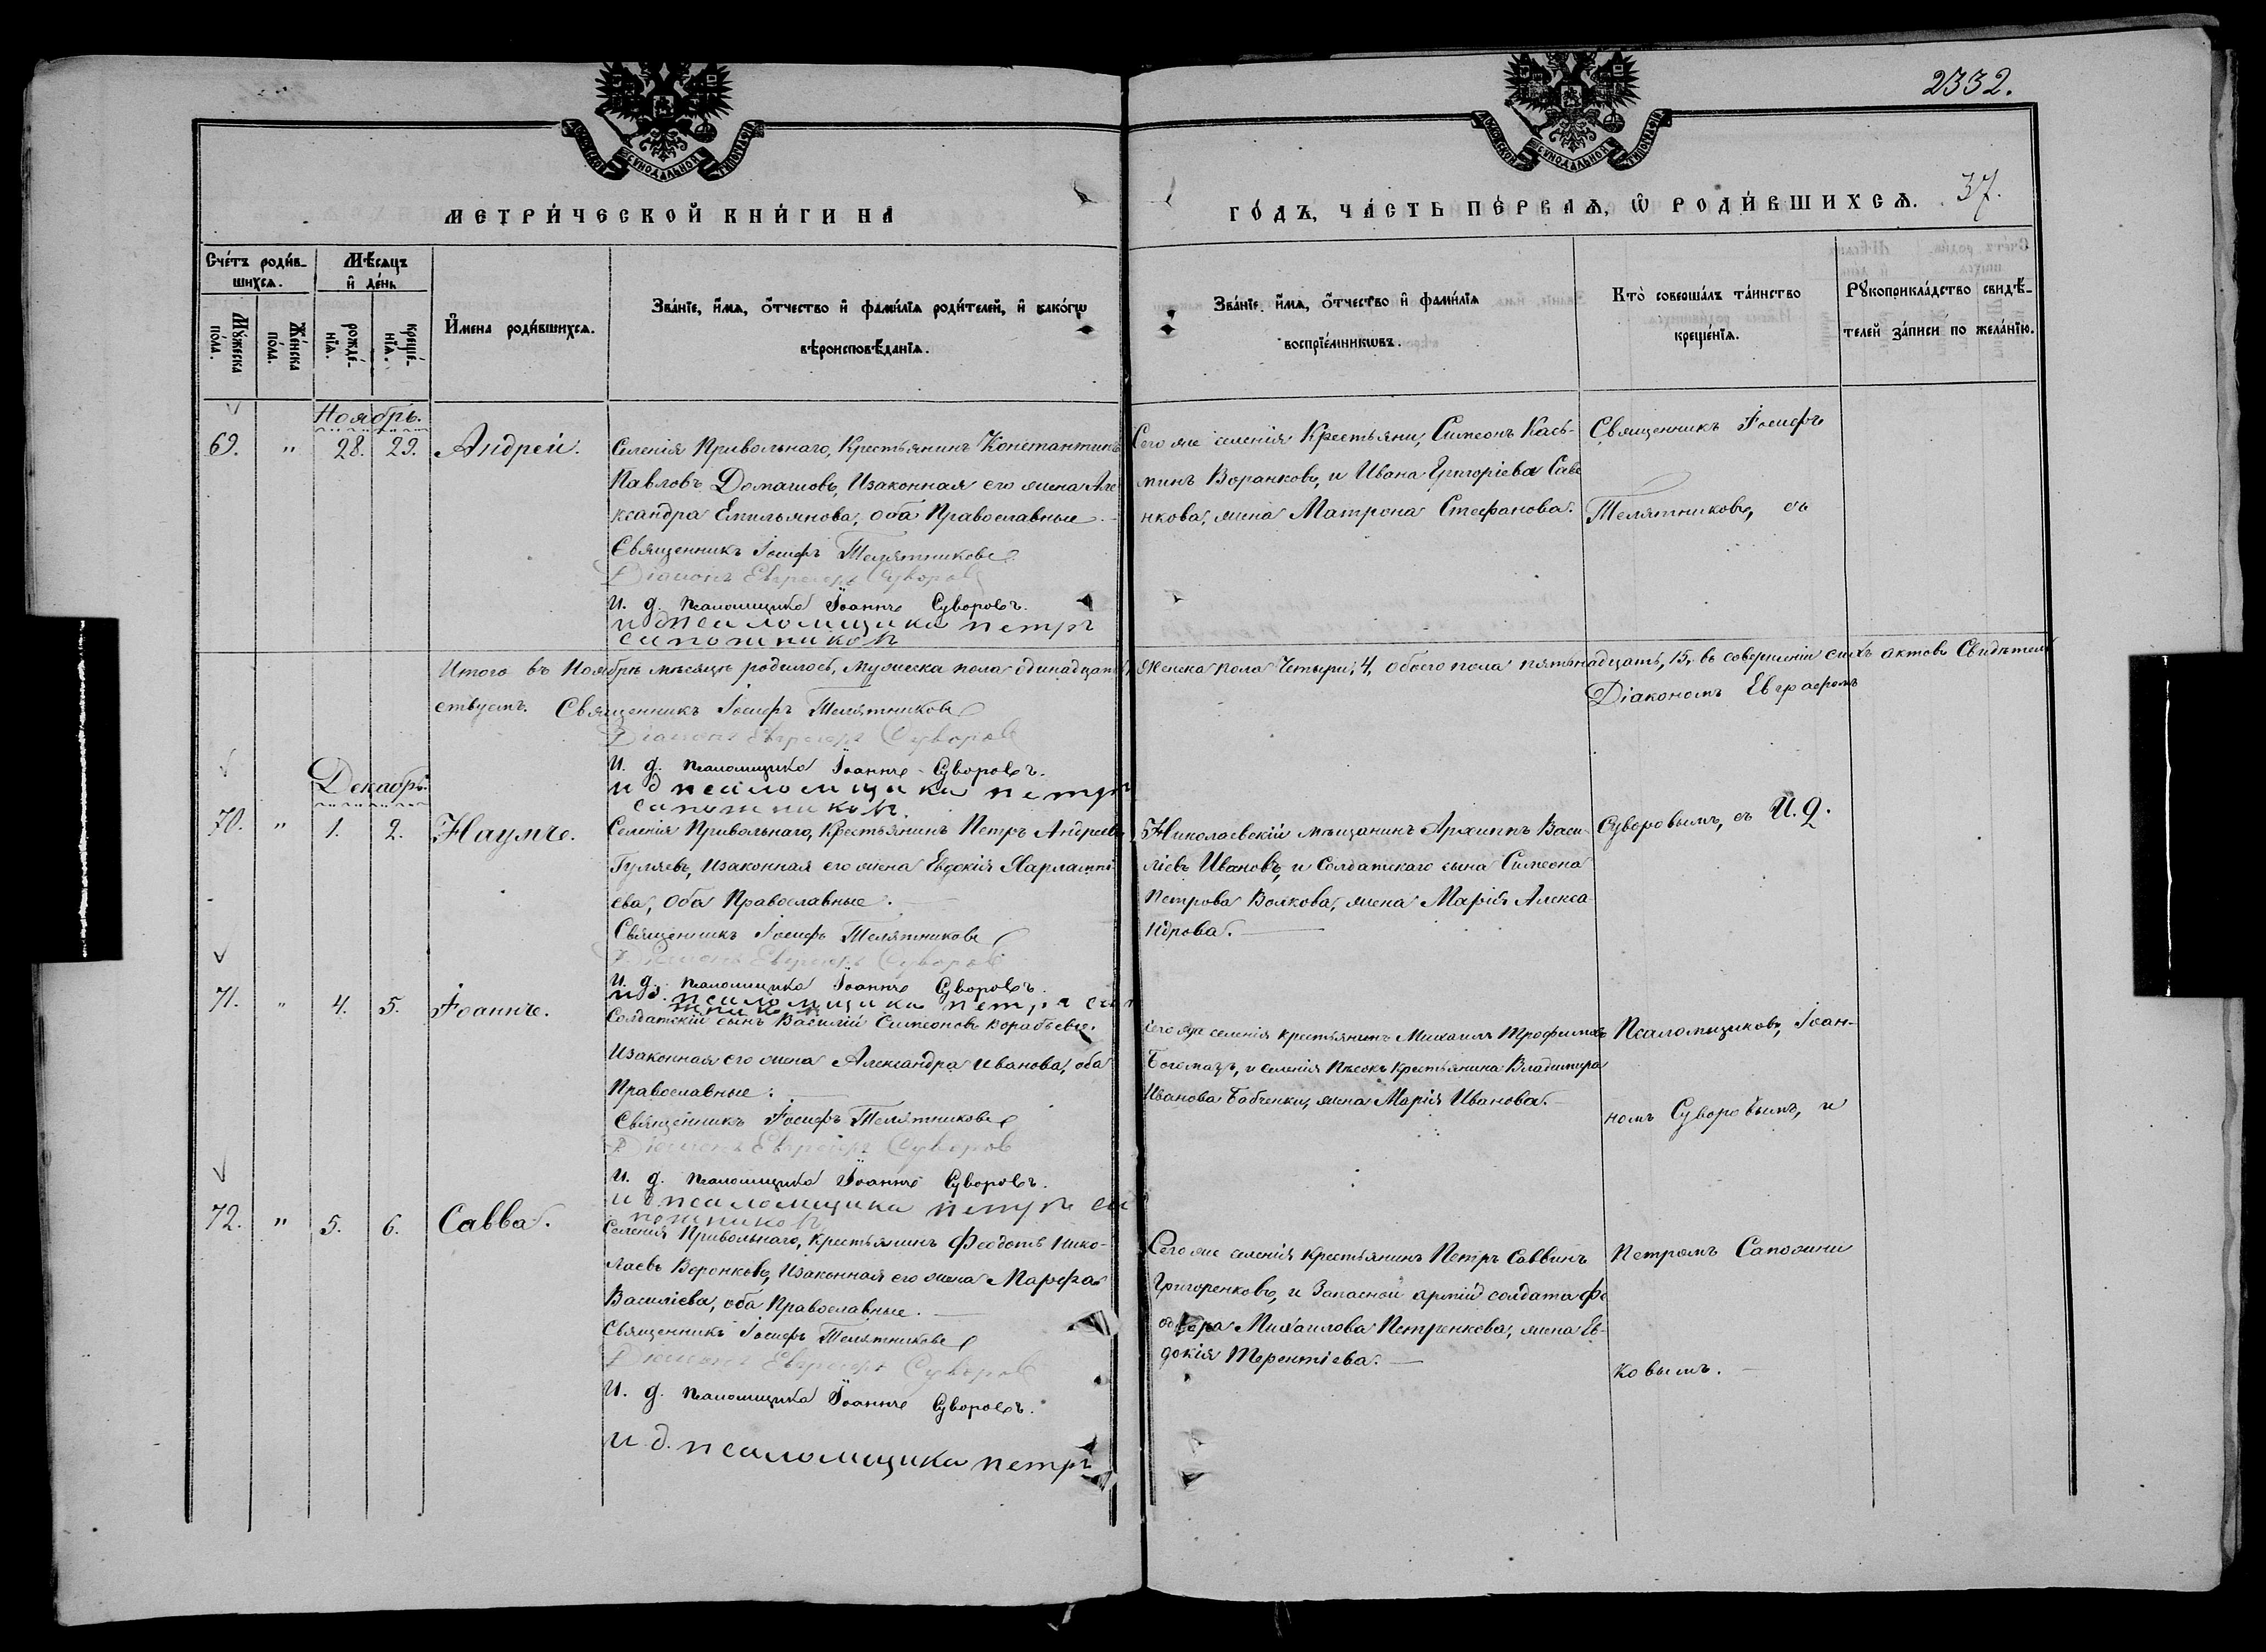 2332.
МОСКОВСКОЙ СѴНОДАЛЬНОЙ ТИПОГРАФІИ
МОСКОВСКОЙ СѴНОДАЛЬНОЙ ТИПОГРАФІИ
МЕТРИ́ЧЕСКОЙ КНИ́ГИ НА
ГО́ДЪ, ЧА́СТЬ ПЕ́РВАѦ, Ѡ҆ РОДИ́ВШИХСѦ. 37.
Сче́тъ роди́в-
шихсѧ.
Мꙋ́жеска
по́ла.
Же́нска
по́ла.
Мѣ́сѧцъ
и҆ де́нь
рожде́-
нїѧ.
креще́-
нїѧ.
И҆мена роди́вшихсѧ.
Зва́нїе, и҆́мѧ, ѻ҆́тчество и҆ фами́лїѧ роди́телей, и҆ како́гѡ
вѣроисповѣ́данїѧ.
Зва́нїе, и҆́мѧ, ѻ҆́тчество и҆ фами́лїѧ
воспрїе́мникѡвъ.
Кто̀ соверша́лъ та́инство
креще́нїѧ.
Рꙋкоприкла́дство свидѣ́-
телей за́писи по жела́нїю.
Ноябрь.
69. " 28. 29. Андрей.
Селенія Привольнаго, Крестьянинъ Константинъ
Павловъ Домашовъ, Изаконная его жена Але
ксандра Емильянова, оба Православные.
Священникъ Іосифъ Телятниковъ
Діаконъ Евграфъ Суворовъ
И. д. псаломщика Іоаннъ Суворовъ.
и д псаломщика петръ
сапожниковъ
Сего же селенія Крестьяни, Симеонъ Кась-
минъ Воранковъ, и Ивана Григоріева Саве
нкова, жена Матрона Стефанова.
Священникъ Іосифъ
Телятниковъ, съ
Итого въ Ноябрѣ мѣсяцѣ родилось, мужеска пола одинадцать женска пола Четыри, 4, обоего пола пятьнадцать, 15, въ совершеніи сихъ актовъ Свидѣтель
ствуемъ. Священникъ Іосифъ Телятниковъ
Діаконъ Евграфъ Суворовъ
И. д. псаломщика Іоаннъ Суворовъ.
и д псаломщика петръ
сапожниковъ.
Діакономъ Евграфомъ
Декабрь.
70. " 1. 2. Наумъ.
Селенія Привольнаго, Крестьянинъ Петръ Андреевъ
Гуляевъ, Изаконная его жена Евдокія Харлампі
ева, Оба Православные.
Священникъ Іосифъ Телятниковъ
Діаконъ Евграфъ Суворовъ
И. д. псаломщика Іоаннъ Суворовъ.
и д. псаломщика петръ сапо
жниковъ
Николаевскій мѣщанинъ Архиппъ Васи-
ліевъ Ивановъ, и Солдатскаго сына Симеона
Петрова Волкова, жена Марія Алекса
ндрова.
Суворовымъ, съ И. д.
71. " 4. 5. Іоаннъ.
Солдатскій сынъ Василій Симеоновъ Воробьевъ,
Изаконная его жена Александра Иванова, оба
Православные.
Священникъ Іосифъ Телятниковъ
Діаконъ Евграфъ Суворовъ
И. д. псаломщика Іоаннъ Суворовъ.
и д псаломщика петръ са
пожниковъ
Сего же селенія крестьянинъ Михаилъ Трофимовъ
Богомазъ, и селенія Пѣсокъ Крестьянина Владимира
Иванова Бабченки, жена Марія Иванова.
Псаломщиковъ, Іоан-
номъ Суворовымъ, и
72. " 5. 6. Савва.
Селенія Привольнаго, Крестьянинъ Феодотъ Нико-
лаевъ Воронковъ, Изаконная его жена Марфа
Василіева, оба Православные.
Священникъ Іосифъ Телятниковъ
Діаконъ Евграфъ Суворовъ
И. д. псаломщика Іоаннъ Суворовъ.
и д. псаломщика петръ
Сего же селенія крестьянинъ Петръ Саввинъ
Григоренковъ, и Запасной арміи солдата Фе
одора Михаилова Петренкова, жена Ев-
докія Терентіева.
Петромъ Сапожни
ковымъ.